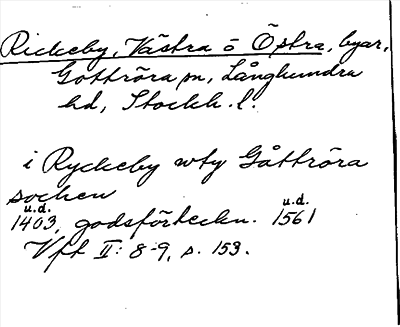 Rickeby, Västra o Östra, byar,
Gottröra sn, Långhundra
hd, Stockh. l.
i Ryckeby wty Gåttröra
socken
u.d. u.d.
1403, godsförteckn. 1561
Vft II: 8-9, s. 153.